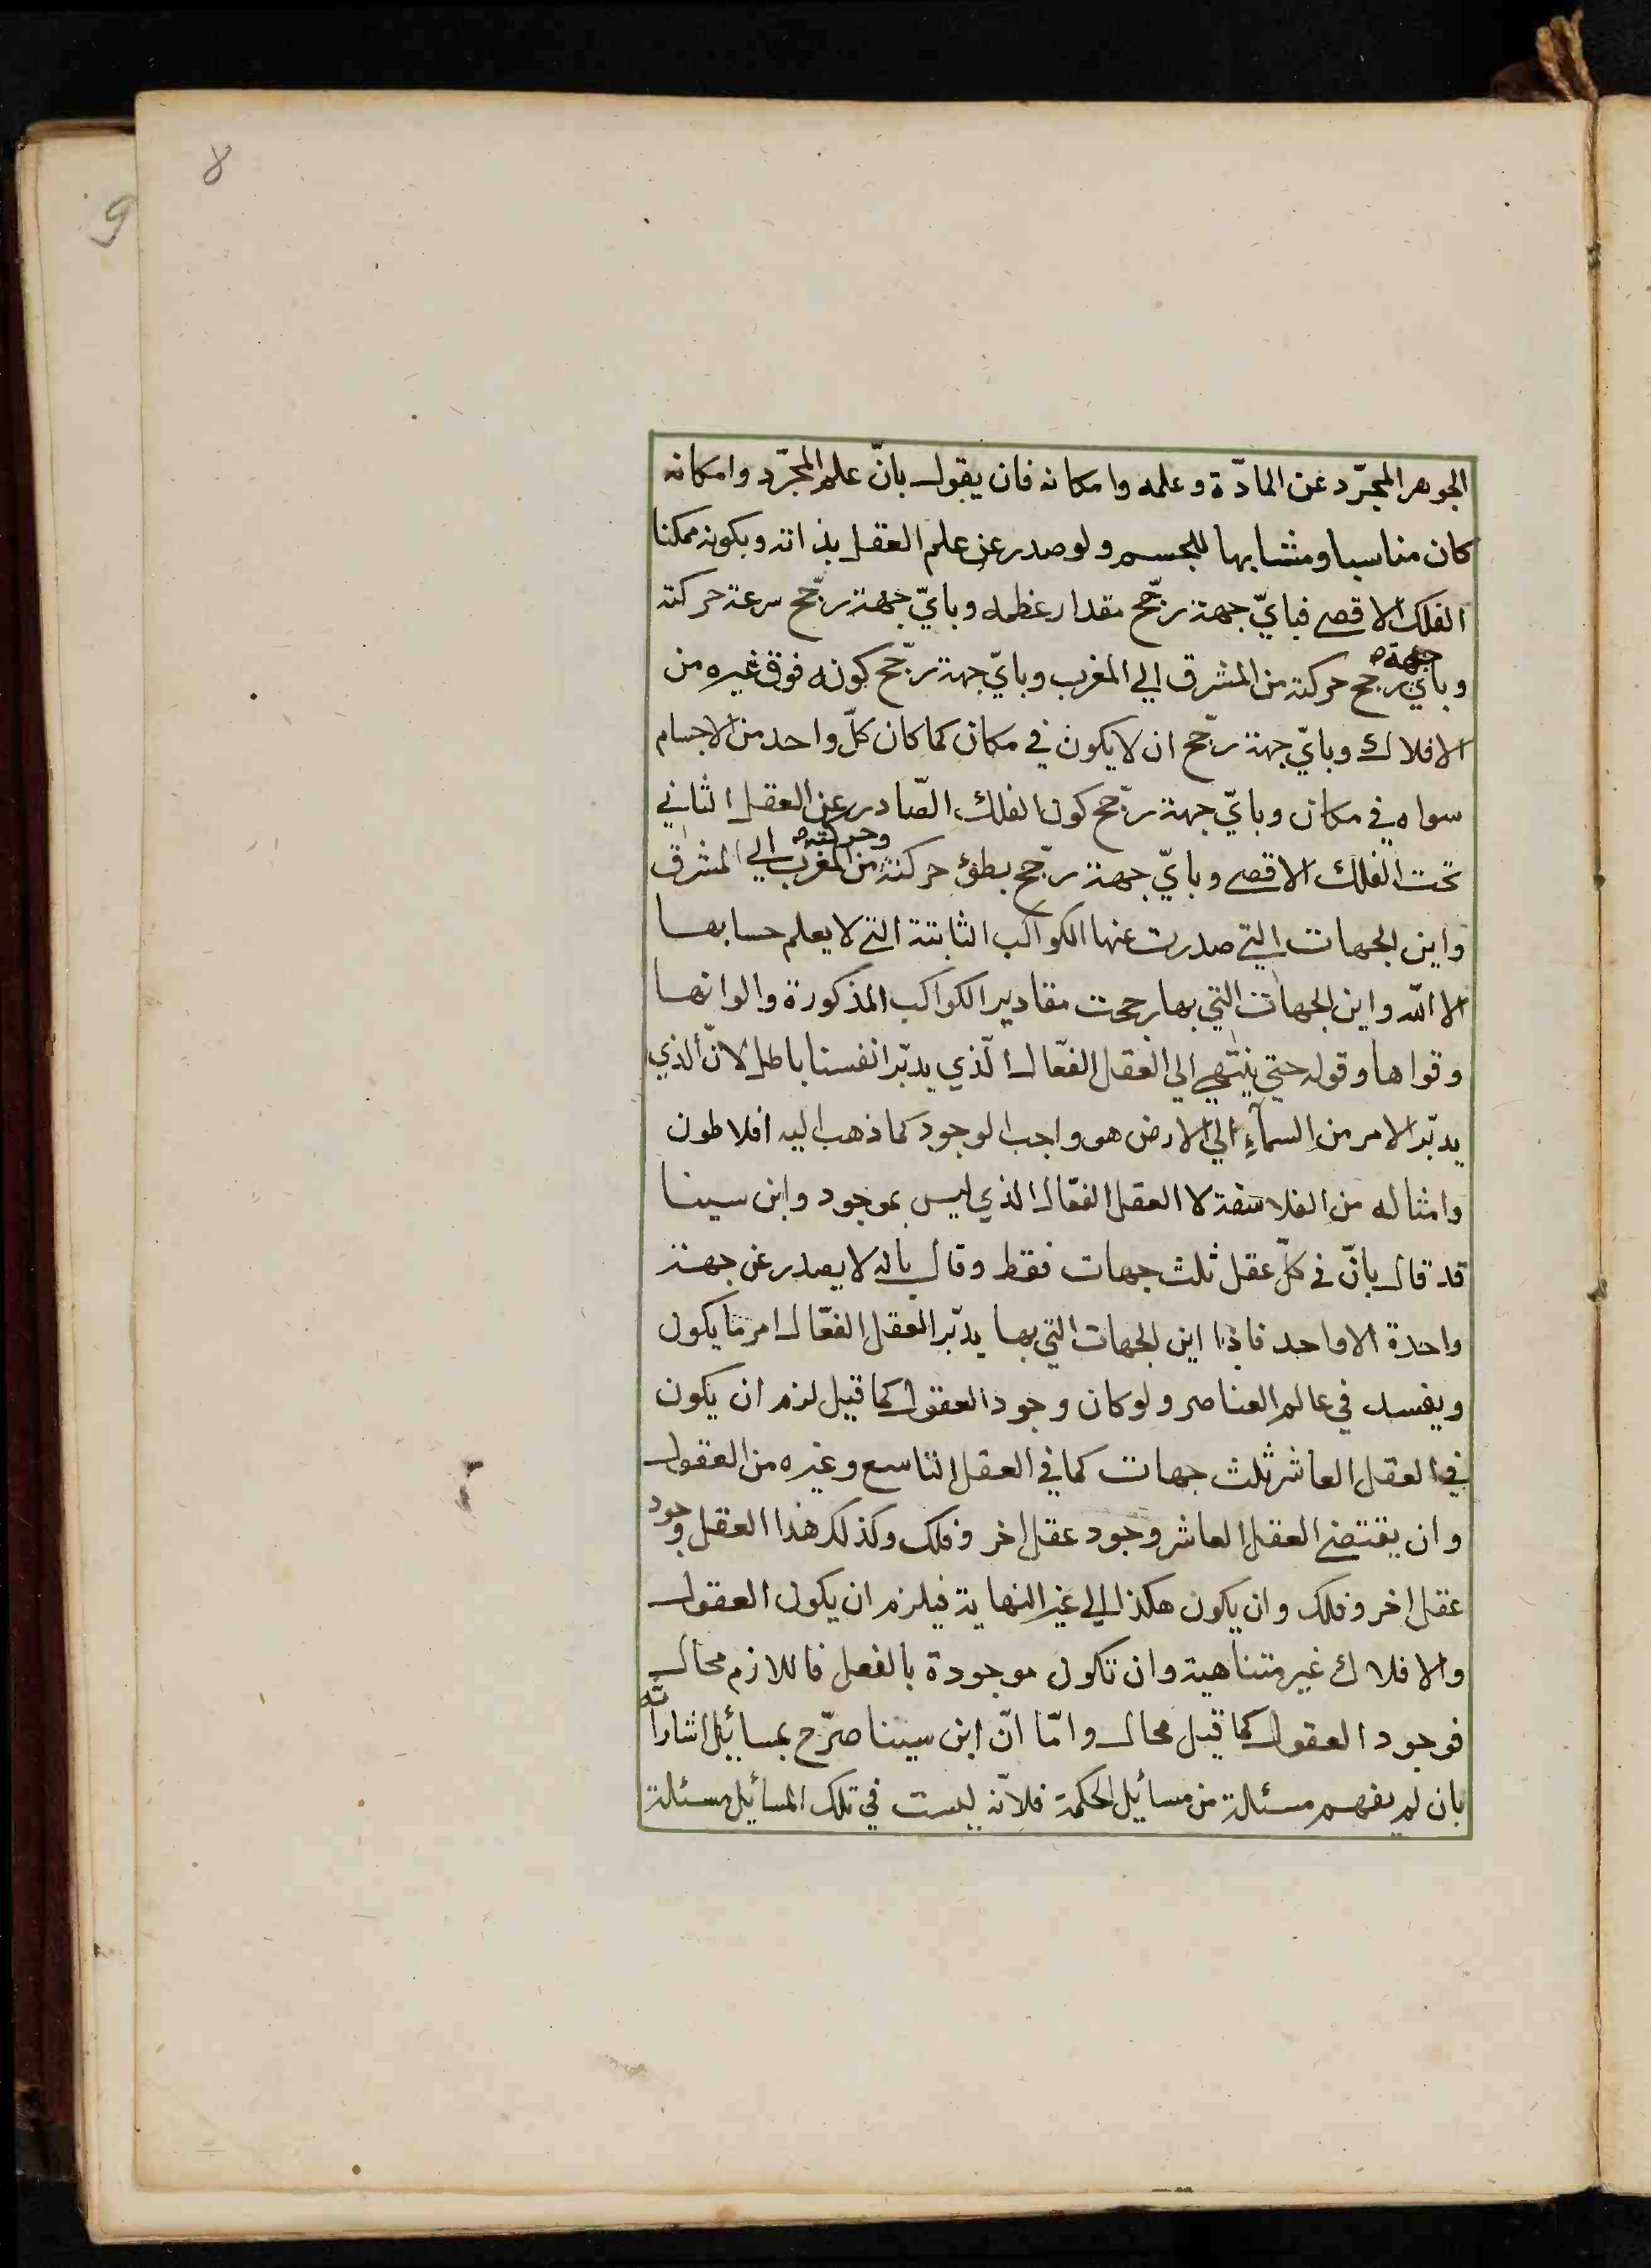 8
9
الجوهر المجرّد عن المادّة وعلمه وامكانه فان يقول بانّ علم المجرّد وامكانه
كان مناسبا ومشابها للجسم ولو صدر عن علم العقل بذاته وبكونه ممكنا
الفلك الاقصى فبايّ جهة رجّح مقدار عظمه وبايّ جهة رجّح سرعة حركته
وبايّ جهة رجّح حركته من المشرق الي المغرب وبايّ جهة رجّح كونه فوق غيره من
الافلاك وبايّ جهة رجّح ان لا يكون في مكان كما كان كلّ واحد من الاجسام
سواه في مكان وبايّ جهة رجّح كون الفلك الصّادر عن العقل الثاني
تحت الفلك الاقصى وبايّ جهة رجّح بطؤ حركته وحركته من المغرب الي المشرق
واين الجهات التي صدرت عنها الكواكب الثابتة التي لا يعلم حسابها
الا اللّه واين الجهات التي بها رجحت مقادير الكواكب المذكورة والوانها
وقواها وقوله حتي ينتهي الي العقل الفعّال الّذي يدبّر انفسنا باطل لانّ الذي
يدبّر الامر من السمآء الي الارض هو واجب الوجود كما ذهب اليه افلاطون
وامثاله من الفلاسفة لا العقل الفعّال الذي ليس بموجود وابن سينا
قد قال بانّ في كلّ عقل ثلث جهات فقط وقال بانه لا يصدر عن جهة
واحدة الا واحد فاذا اين الجهات التي بها يدبّر العقل الفعّال امر ما يكون
ويفسد في عالم العناصر ولو كان وجود العقول كما قيل لزم ان يكون
في العقل العاشر ثلث جهات كما في العقل التاسع وغيره من العقول
وان يقتضي العقل العاشر وجود عقل اخر وفلك وكذلك هذا العقل وجود
عقل اخر وفلك وان يكون هكذا الي غير النهاية فيلزم ان يكون العقول
والافلاك غير متناهية وان تكون موجودة بالفعل فاللازم محال
فوجود العقول كما قيل محال وامّا انّ ابن سينا صرّح بمسائل اشاراته
بان لم يفهم مسئلة من مسائل الحكمة فلانّه ليست في تلك المسائل مسئلة